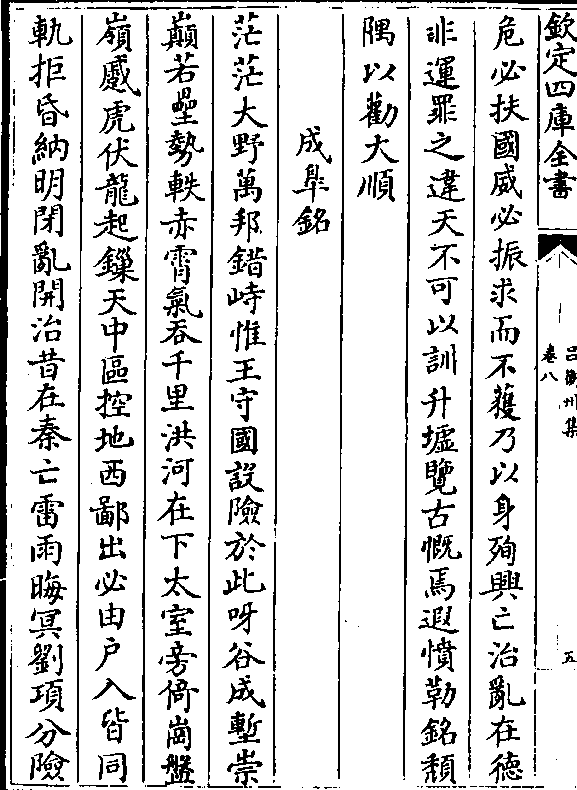 欽定四庫全書
呂衡州集
卷八
五
危必扶國威必振求而不獲乃以身殉興亡治亂在德
非運罪之違天不可以訓升墟覽古慨焉遐憤勒銘頹
隅以勸大順
成臯銘
茫茫大野萬邦錯峙惟王守國設險於此呀谷成塹崇
巔若壘勢軼赤霄氣吞千里洪河在下太室旁倚崗盤
嶺蹙虎伏龍起鏁天中區控地西鄙出必由户入皆同
軌拒昏納明閉亂開治昔在秦亡雷雨晦冥劉項分險